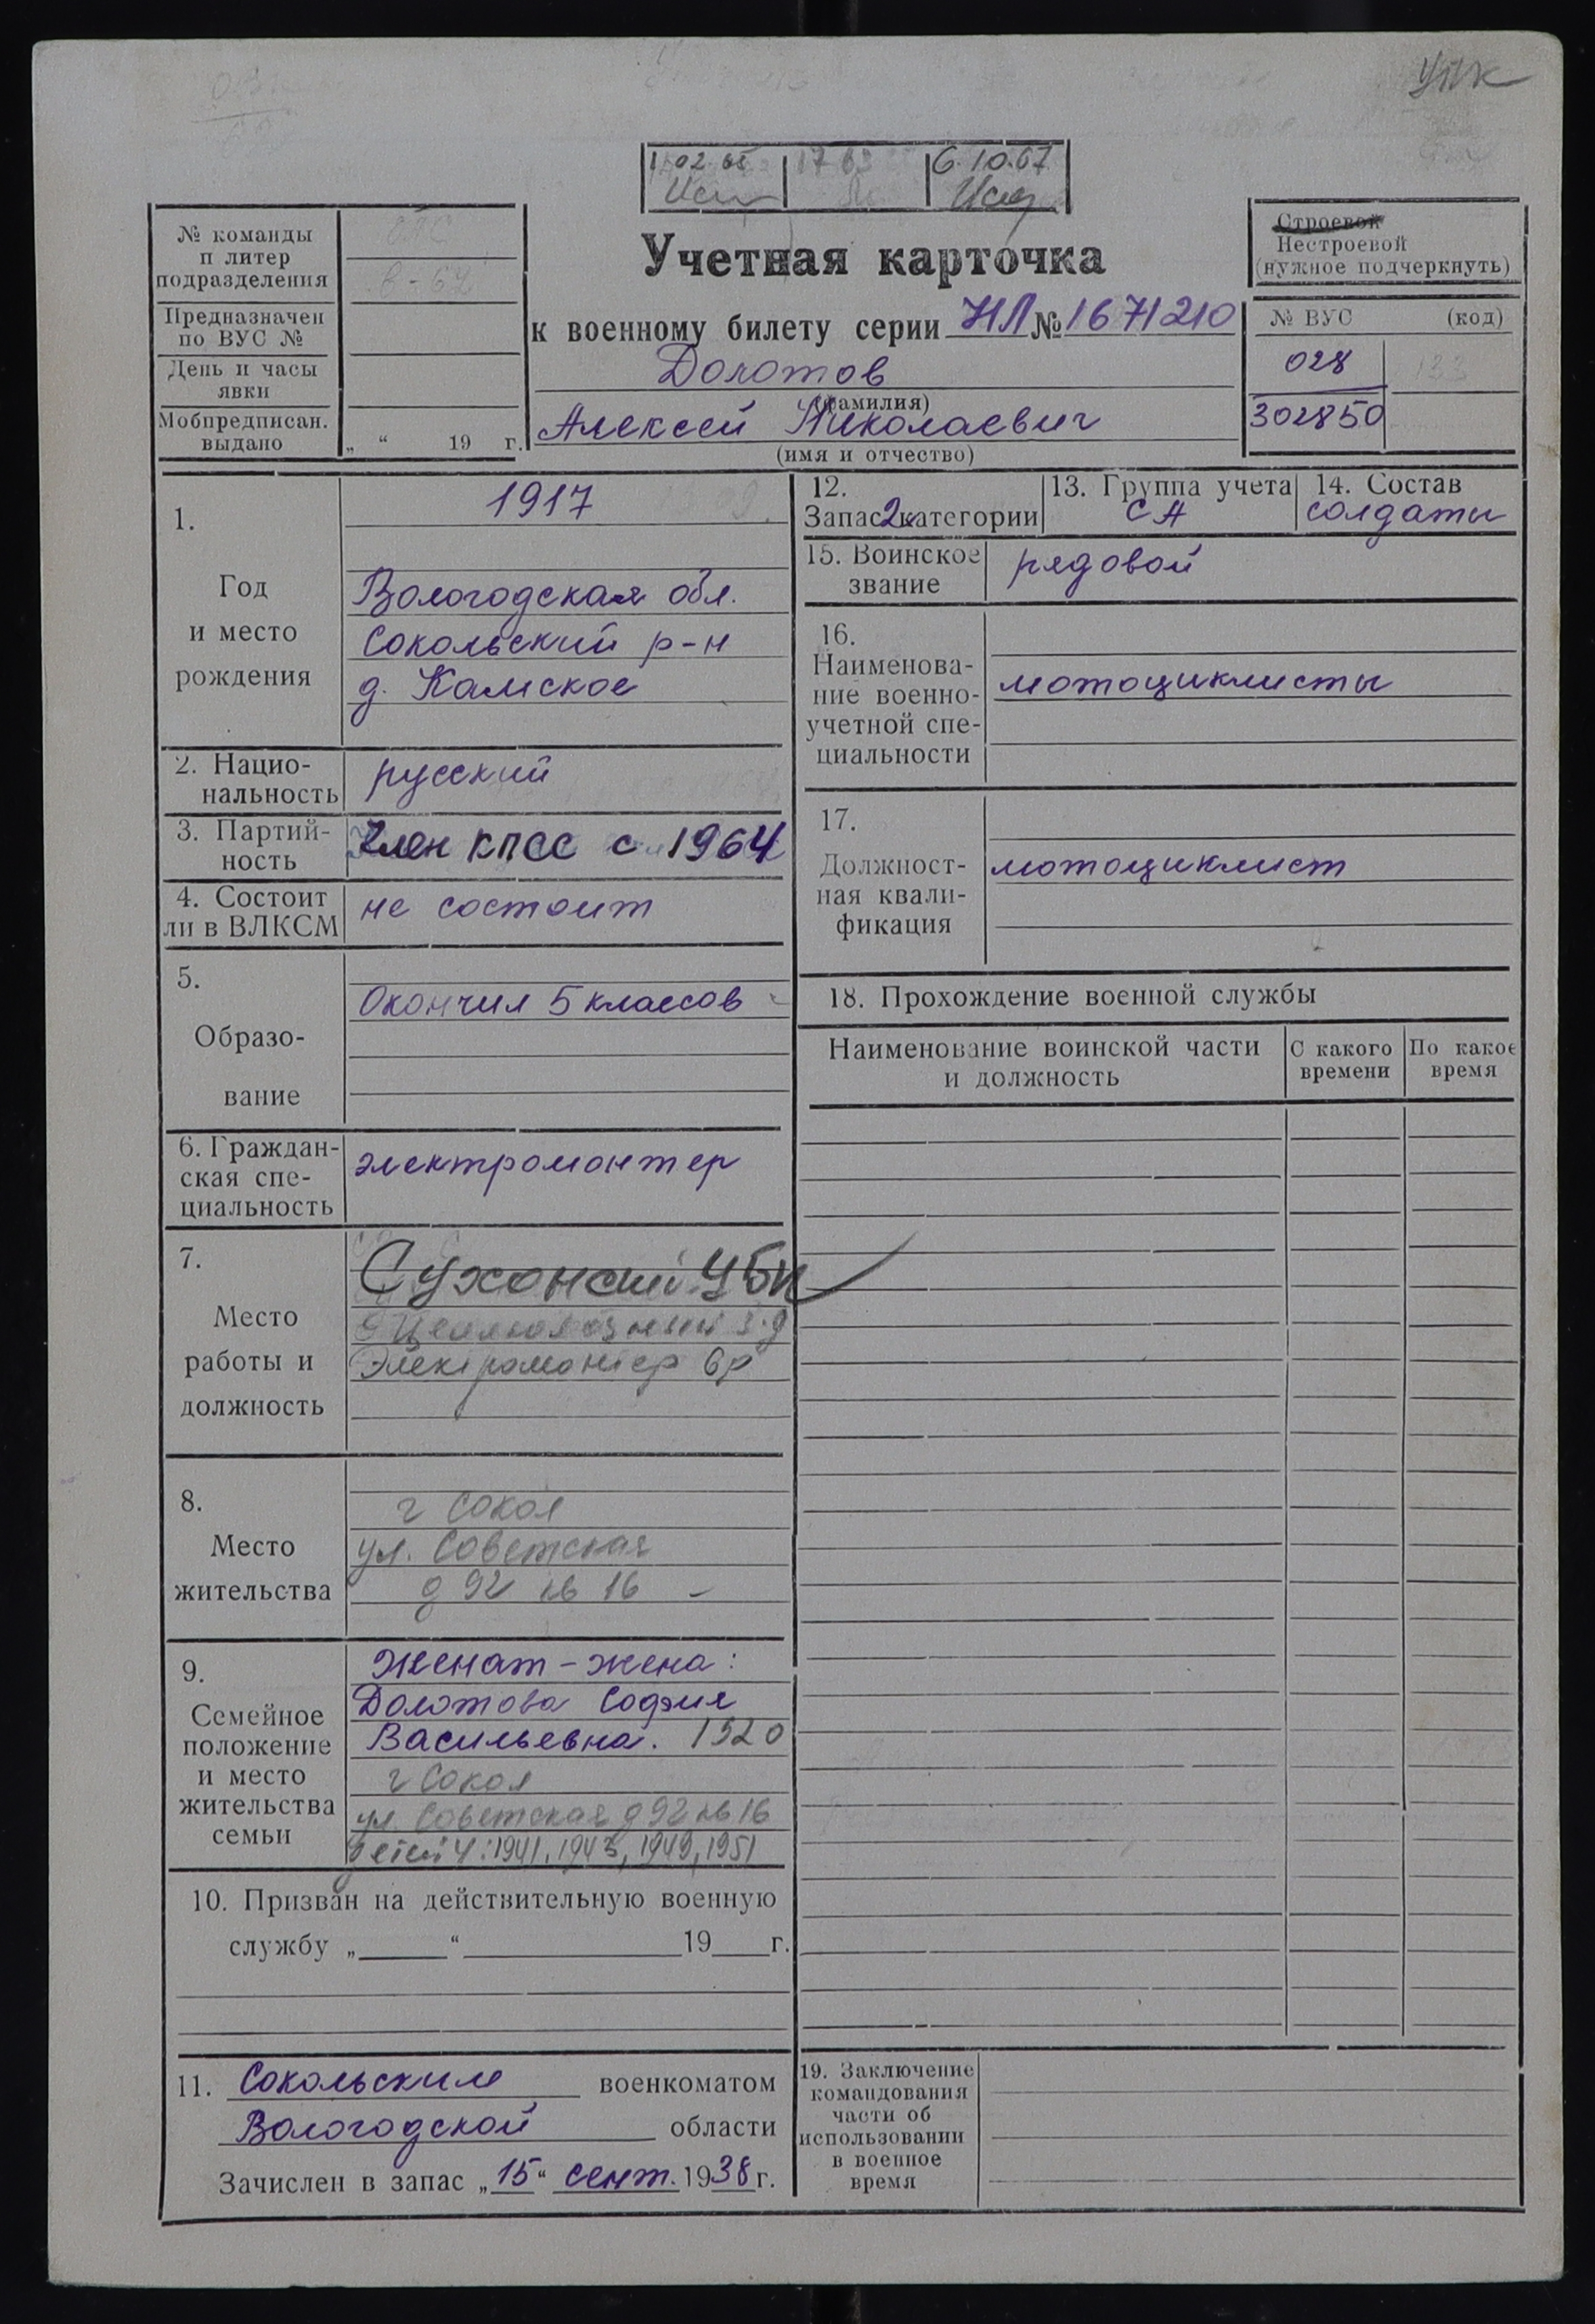 УПК
1 02 65
17 63
6.10.67
№ команды
п литер
подразделения
Предназначен
по ВУС №
День и часы
явки
Мобпредписан.
выдано
„ “ 19 г.
Учетная карточка
к военному билету серии НЛ № 1671210
Долотов
(фамилия)
Алексей Николаевич
(имя и отчество)
Строевой
Нестроевой
(нужное подчеркнуть)
№ ВУС (код)
028 133
302850
1.
Год
и место
рождения
1917
Вологодская обл.
Сокольский р-н
д. Камское
2. Нацио-
нальность
русский
3. Партий-
ность
Член КПСС с 1964
4. Состоит
ли в ВЛКСМ
не состоит
5.
Образо-
вание
Окончил 5 классов
6. Граждан-
ская спе-
циальность
электромонтер
7.
Место
работы и
должность
Сухонский ЦБК
Целлюлозный з-д
Электромонтер 6р
8.
Место
жительства
г Сокол
ул. Советская
д 92 кв 16
9.
Семейное
положение
и место
жительства
семьи
Женат - жена:
Долотова София
Васильевна. 1920
г Сокол
ул. Советская д 92 кв 16
детей 4: 1941, 1943, 1949, 1951
10. Призван на действительную военную
службу „ “ 19 г.
11. Сокольским военкоматом
Вологодской области
Зачислен в запас „15“ сент. 1938 г.
12.
Запас 2 категории
13. Группа учета
СА
14. Состав
солдаты
15. Воинское
звание
рядовой
16.
Наименова-
ние военно-
учетной спе-
циальности
мотоциклисты
17.
Должност-
ная квали-
фикация
мотоциклист
18. Прохождение военной службы
Наименование воинской части
и должность
С какого
времени
По какое
время
19. Заключение
командования
части об
использовании
в военное
время